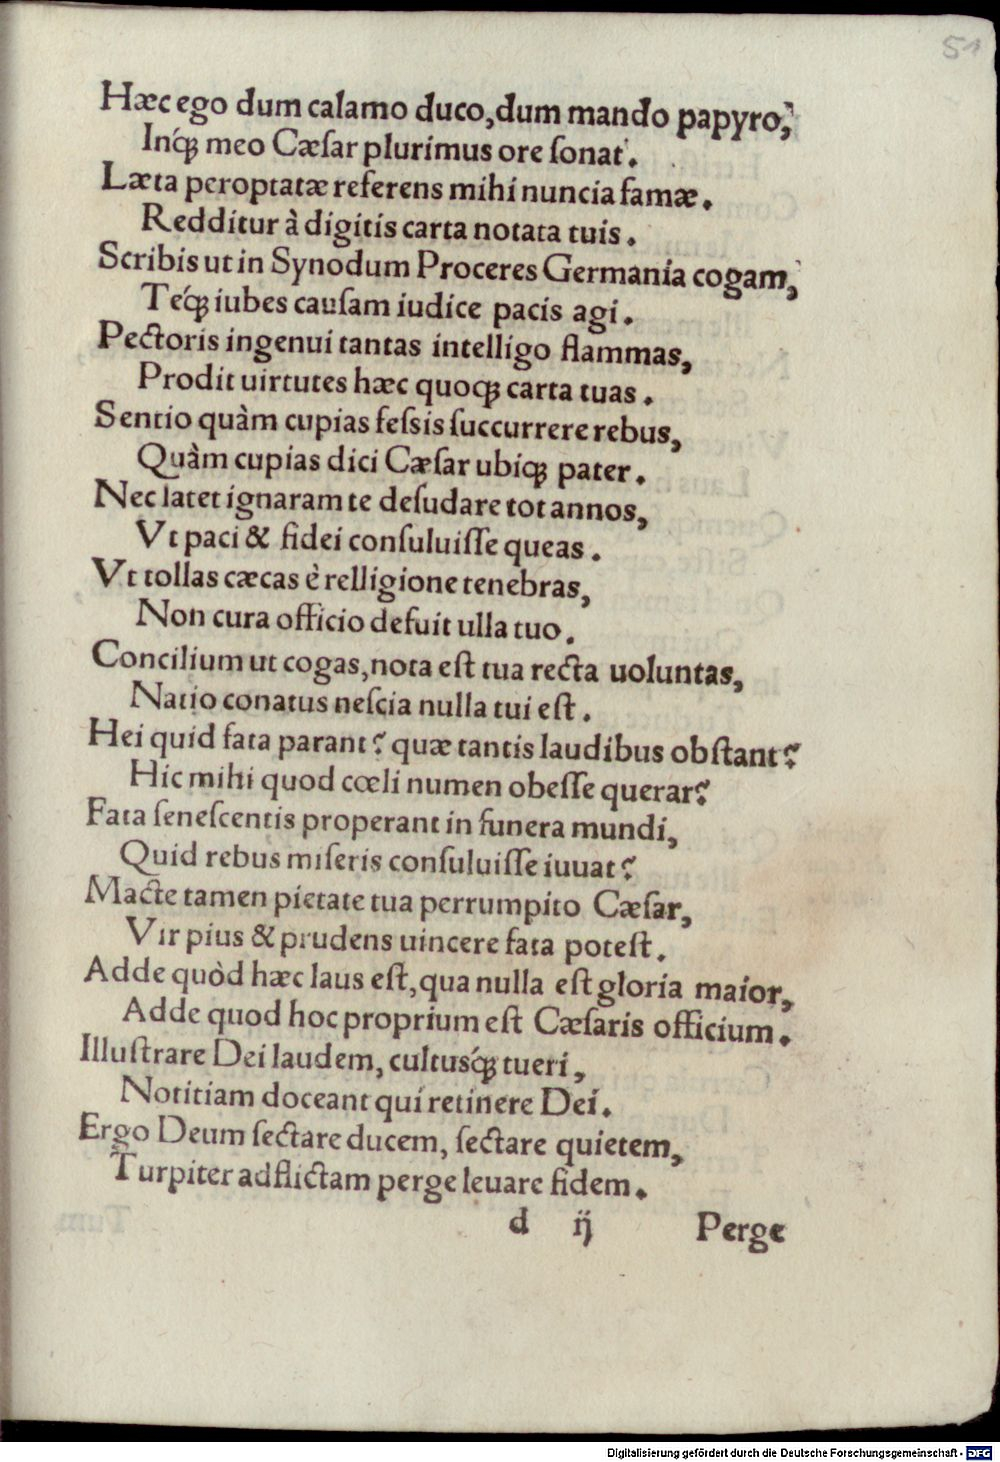 51
Hæc ego dum calamo duco, dum mando papyro,
Inq́ꝫ meo Cæſar plurimus ore ſonat.
Læta peroptatæ referens mihi nuncia famæ.
Redditur à digitis carta notata tuis.
Scribis ut in Synodum Proceres Germania cogam,
Teq́ꝫ iubes cauſam iudice pacis agi.
Pectoris ingenui tantas intelligo flammas,
Prodit uirtutes hæc quoqꝫ carta tuas.
Sentio quàm cupias feſsis ſuccurrere rebus,
Quàm cupias dici Cæſar ubiqꝫ pater.
Nec latet ignaram te deſudare tot annos,
Vt paci & fidei conſuluiſſe queas.
Vt tollas cæcas è relligione tenebras,
Non cura officio defuit ulla tuo.
Concilium ut cogas, nota eſt tua recta uoluntas,
Natio conatus neſcia nulla tui eſt.
Hei quid fata parant? quæ tantis laudibus obſtant?
Hic mihi quod cœli numen obeſſe querar?
Fata ſeneſcentis properant in funera mundi,
Quid rebus miſeris conſuluiſſe iuuat?
Macte tamen pietate tua perrumpito Cæſar,
Vir pius & prudens uincere fata poteſt.
Adde quòd hæc laus eſt, qua nulla eſt gloria maior,
Adde quod hoc proprium eſt Cæſaris officium.
Illuſtrare Dei laudem, cultusq́ꝫ tueri,
Notitiam doceant qui retinere Dei.
Ergo Deum ſectare ducem, ſectare quietem,
Turpiter adflictam perge leuare fidem.
d ij Perge
Digitalisierung gefördert durch die Deutsche Forschungsgemeinschaft - DFG